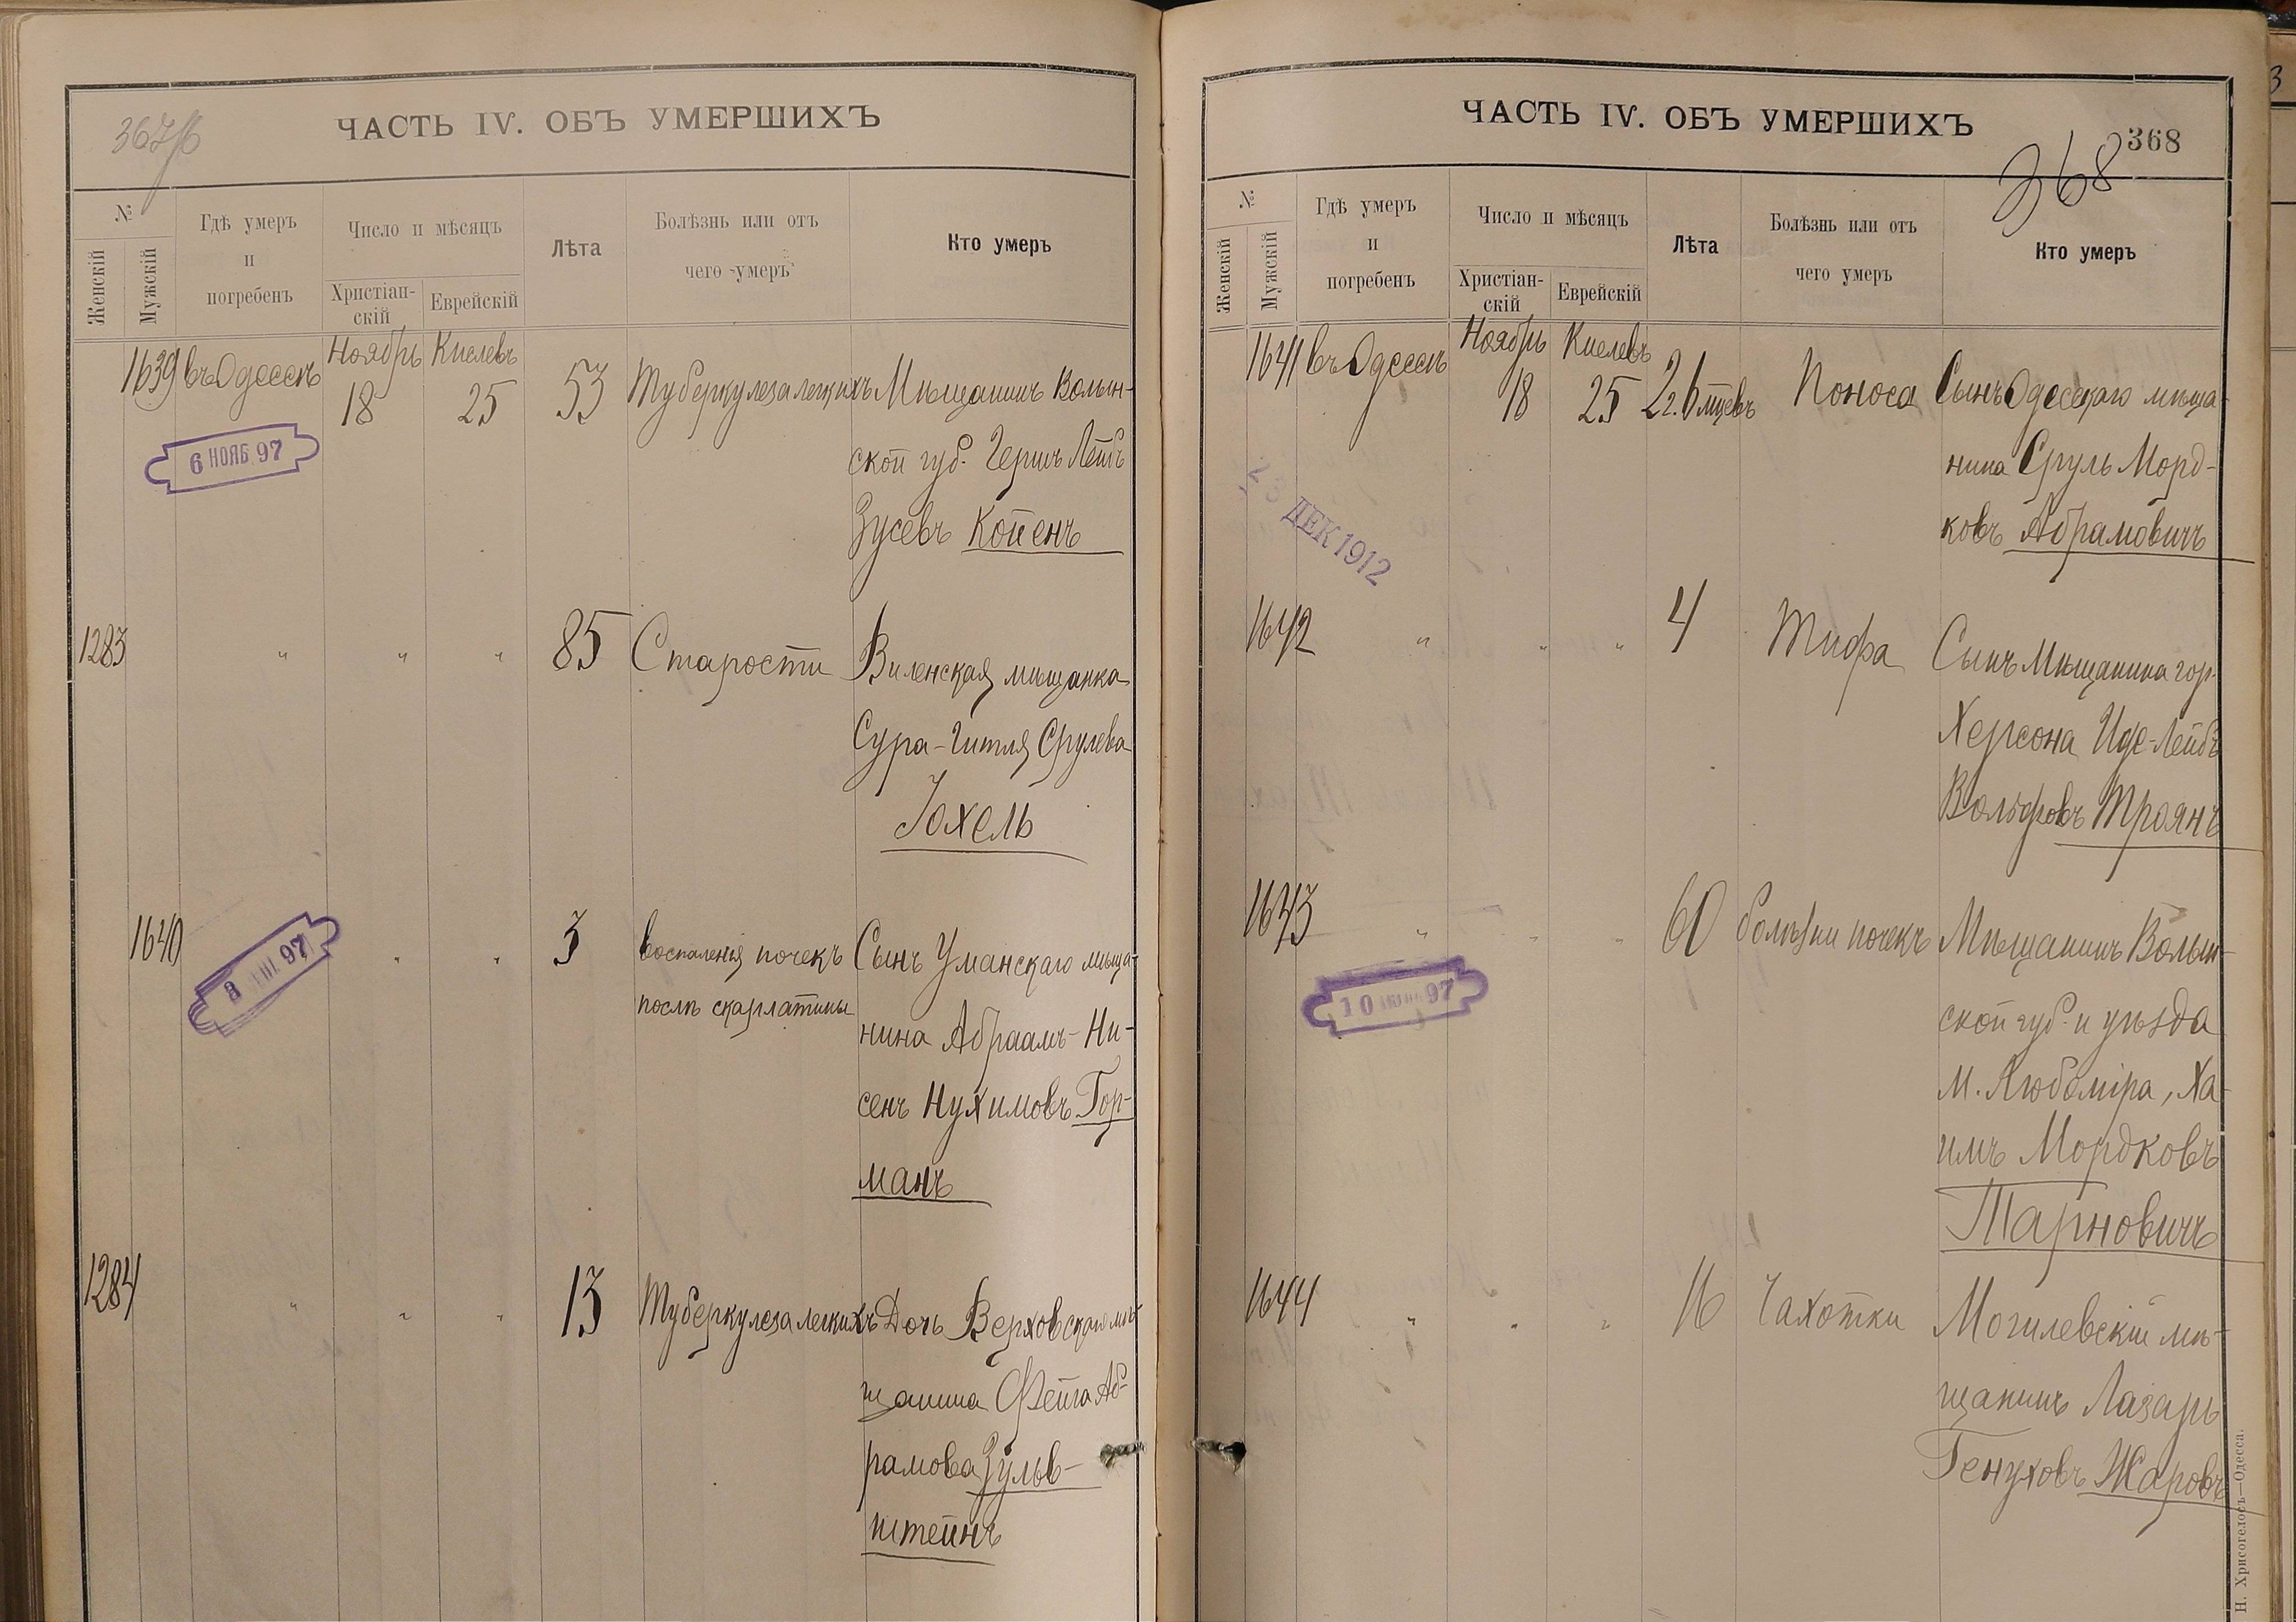 367/б
ЧАСТЬ IV. ОБЪ УМЕРШИХЪ
№
Женскій
Мужскій
Гдѣ умеръ
и
погребенъ
Число и мѣсяцъ
Христіан-
скій
Еврейскій
Лѣта
Болѣзнь или отъ
чего умеръ
Кто умеръ
1639 въ Одессѣ Ноябрь 18 Кислевъ 25 53 Туберкулеза легкихъ Мѣщанинъ Волын-
ской губ. Гершъ Лейбъ
Зусевъ Койенъ
6 НОЯБ 97
1283 " " " 85 Старости Виленская мѣщанка
Сура-Гитля Срулева
Іохель
1640 " " 3 воспаленія почекъ Сынъ Уманскаго мѣща-
послѣ скарлатины нина Абраамъ-Ни-
сенъ Нухимовъ Гор-
манъ
8 97
1284 " " " 13 Туберкулеза легкихъ Дочь Верховскаго мѣ-
щанина Фейга Аб-
рамова Зульв-
штейнъ
ЧАСТЬ IV. ОБЪ УМЕРШИХЪ
368
368
№
Женскій
Мужскій
Гдѣ умеръ
и
погребенъ
Число и мѣсяцъ
Христіан-
скій
Еврейскій
Лѣта
Болѣзнь или отъ
чего умеръ
Кто умеръ
1641 въ Одессѣ Ноябрь 18 Кислевъ 25 2 г. 6 мцевъ Поноса Сынъ Одесскаго мѣща-
нина Сруль Морд-
ковъ Абрамовичъ
23 ДЕК 1912
1642 " " " 4 Тифа Сынъ Мѣщанина гор.
Херсона Иде-Лейбъ
Вольфовъ Троянъ
1643 " " " 60 болѣзни почекъ Мѣщанинъ Волын-
ской губ. и уѣзда
м. Любоміра, Ха-
имъ Мордковъ
Тарновичъ
10 97
1644 " " " 16 Чахотки Могилевскій мѣ-
щанинъ Лазарь
Генуховъ Жаровъ
Н. Хрисогелосъ—Одесса.